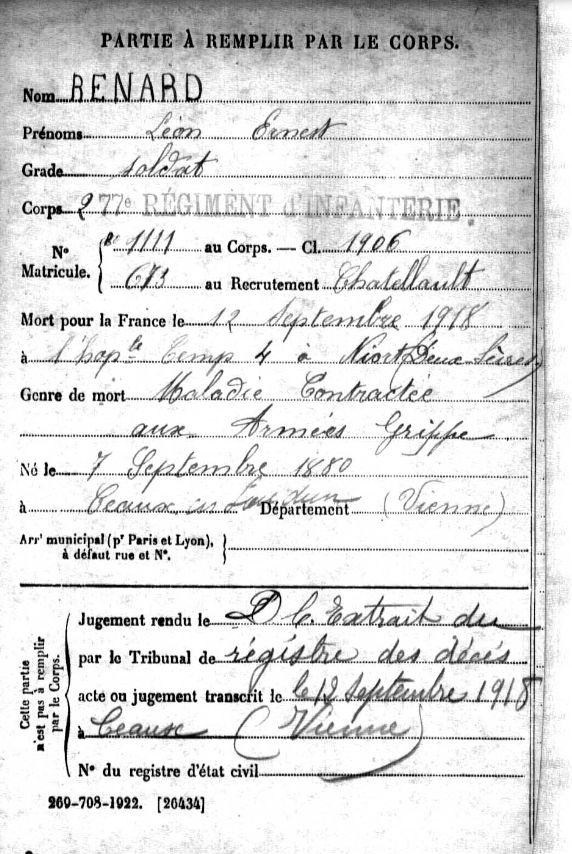 PARTIE À REMPLIR PAR LE CORPS.
Nom BENARD
Prénoms Léon Ernest
Grade soldat
Corps 277e RÉGIMENT d'INFANTERIE.
No Matricule. { 1111 au Corps. — Cl. 1906
673 au Recrutement Chatellault
Mort pour la France le 12 Septembre 1918
à l'hop le Temp 4 à Niort Deux-Sèvres
Genre de mort Maladie Contractée
aux Armées Grippe
Né le 7 Septembre 1880
à Ceaux en Loudun Département (Vienne)
Arrt municipal (pr Paris et Lyon), à défaut rue et No. }
Cette partie n'est pas à remplir par le Corps.
Jugement rendu le Extrait du
par le Tribunal de régistre des décés
acte ou jugement transcrit le le 12 Septembre 1918
à Ceaux (Vienne)
No du registre d'état civil
269-708-1922. [26434]